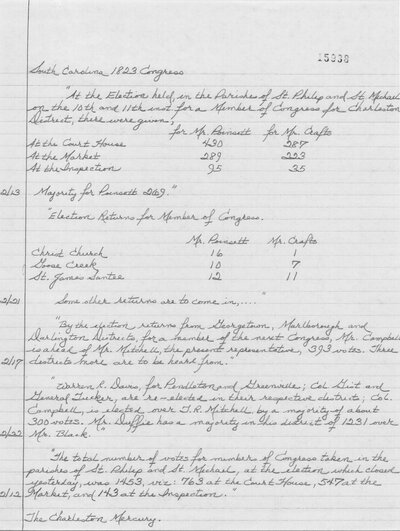 15938
South Carolina 1823 Congress
"At the Election held, in the Parishes of St. Philip and St. Michael
on the 10th and 11th inst. for a Member of Congress for Charleston
District, there were given,
for Mr. Poinsett for Mr. Crafts
At the Court House 430 287
At the Market 289 223
At the Inspection 95 35
2/13 Majority for Poinsett 269."
"Election Returns for Member of Congress.
Mr. Poinsett Mr. Crafts
Christ Church 16 1
Goose Creek 10 7
St. James Santee 12 11
2/21 Some other returns are to come in,...."
"By the election returns from Georgetown, Marlborough and
Darlington Districts, for a member of the next Congress, Mr. Campbell
is ahead of Mr. Mitchell, the present representative, 393 votes. Three
2/17 districts more are to be heard from."
"Warren R. Davis, for Pendleton and Greenville; Col. Gist and
General Tucker, are re-elected in their respective districts; Col.
Campbell, is elected over T.R. Mitchell, by a majority of about
300 votes. Mr. Duffie has a majority in his district of 1231 over
2/22 Mr. Black."
"The total number of votes for members of Congress taken in the
parishes of St. Philip and St. Michael, at the election which closed
yesterday, was 1453, viz: 763 at the Court House, 547 at the
2/12 Market, and 143 at the Inspection."
The Charleston Mercury.